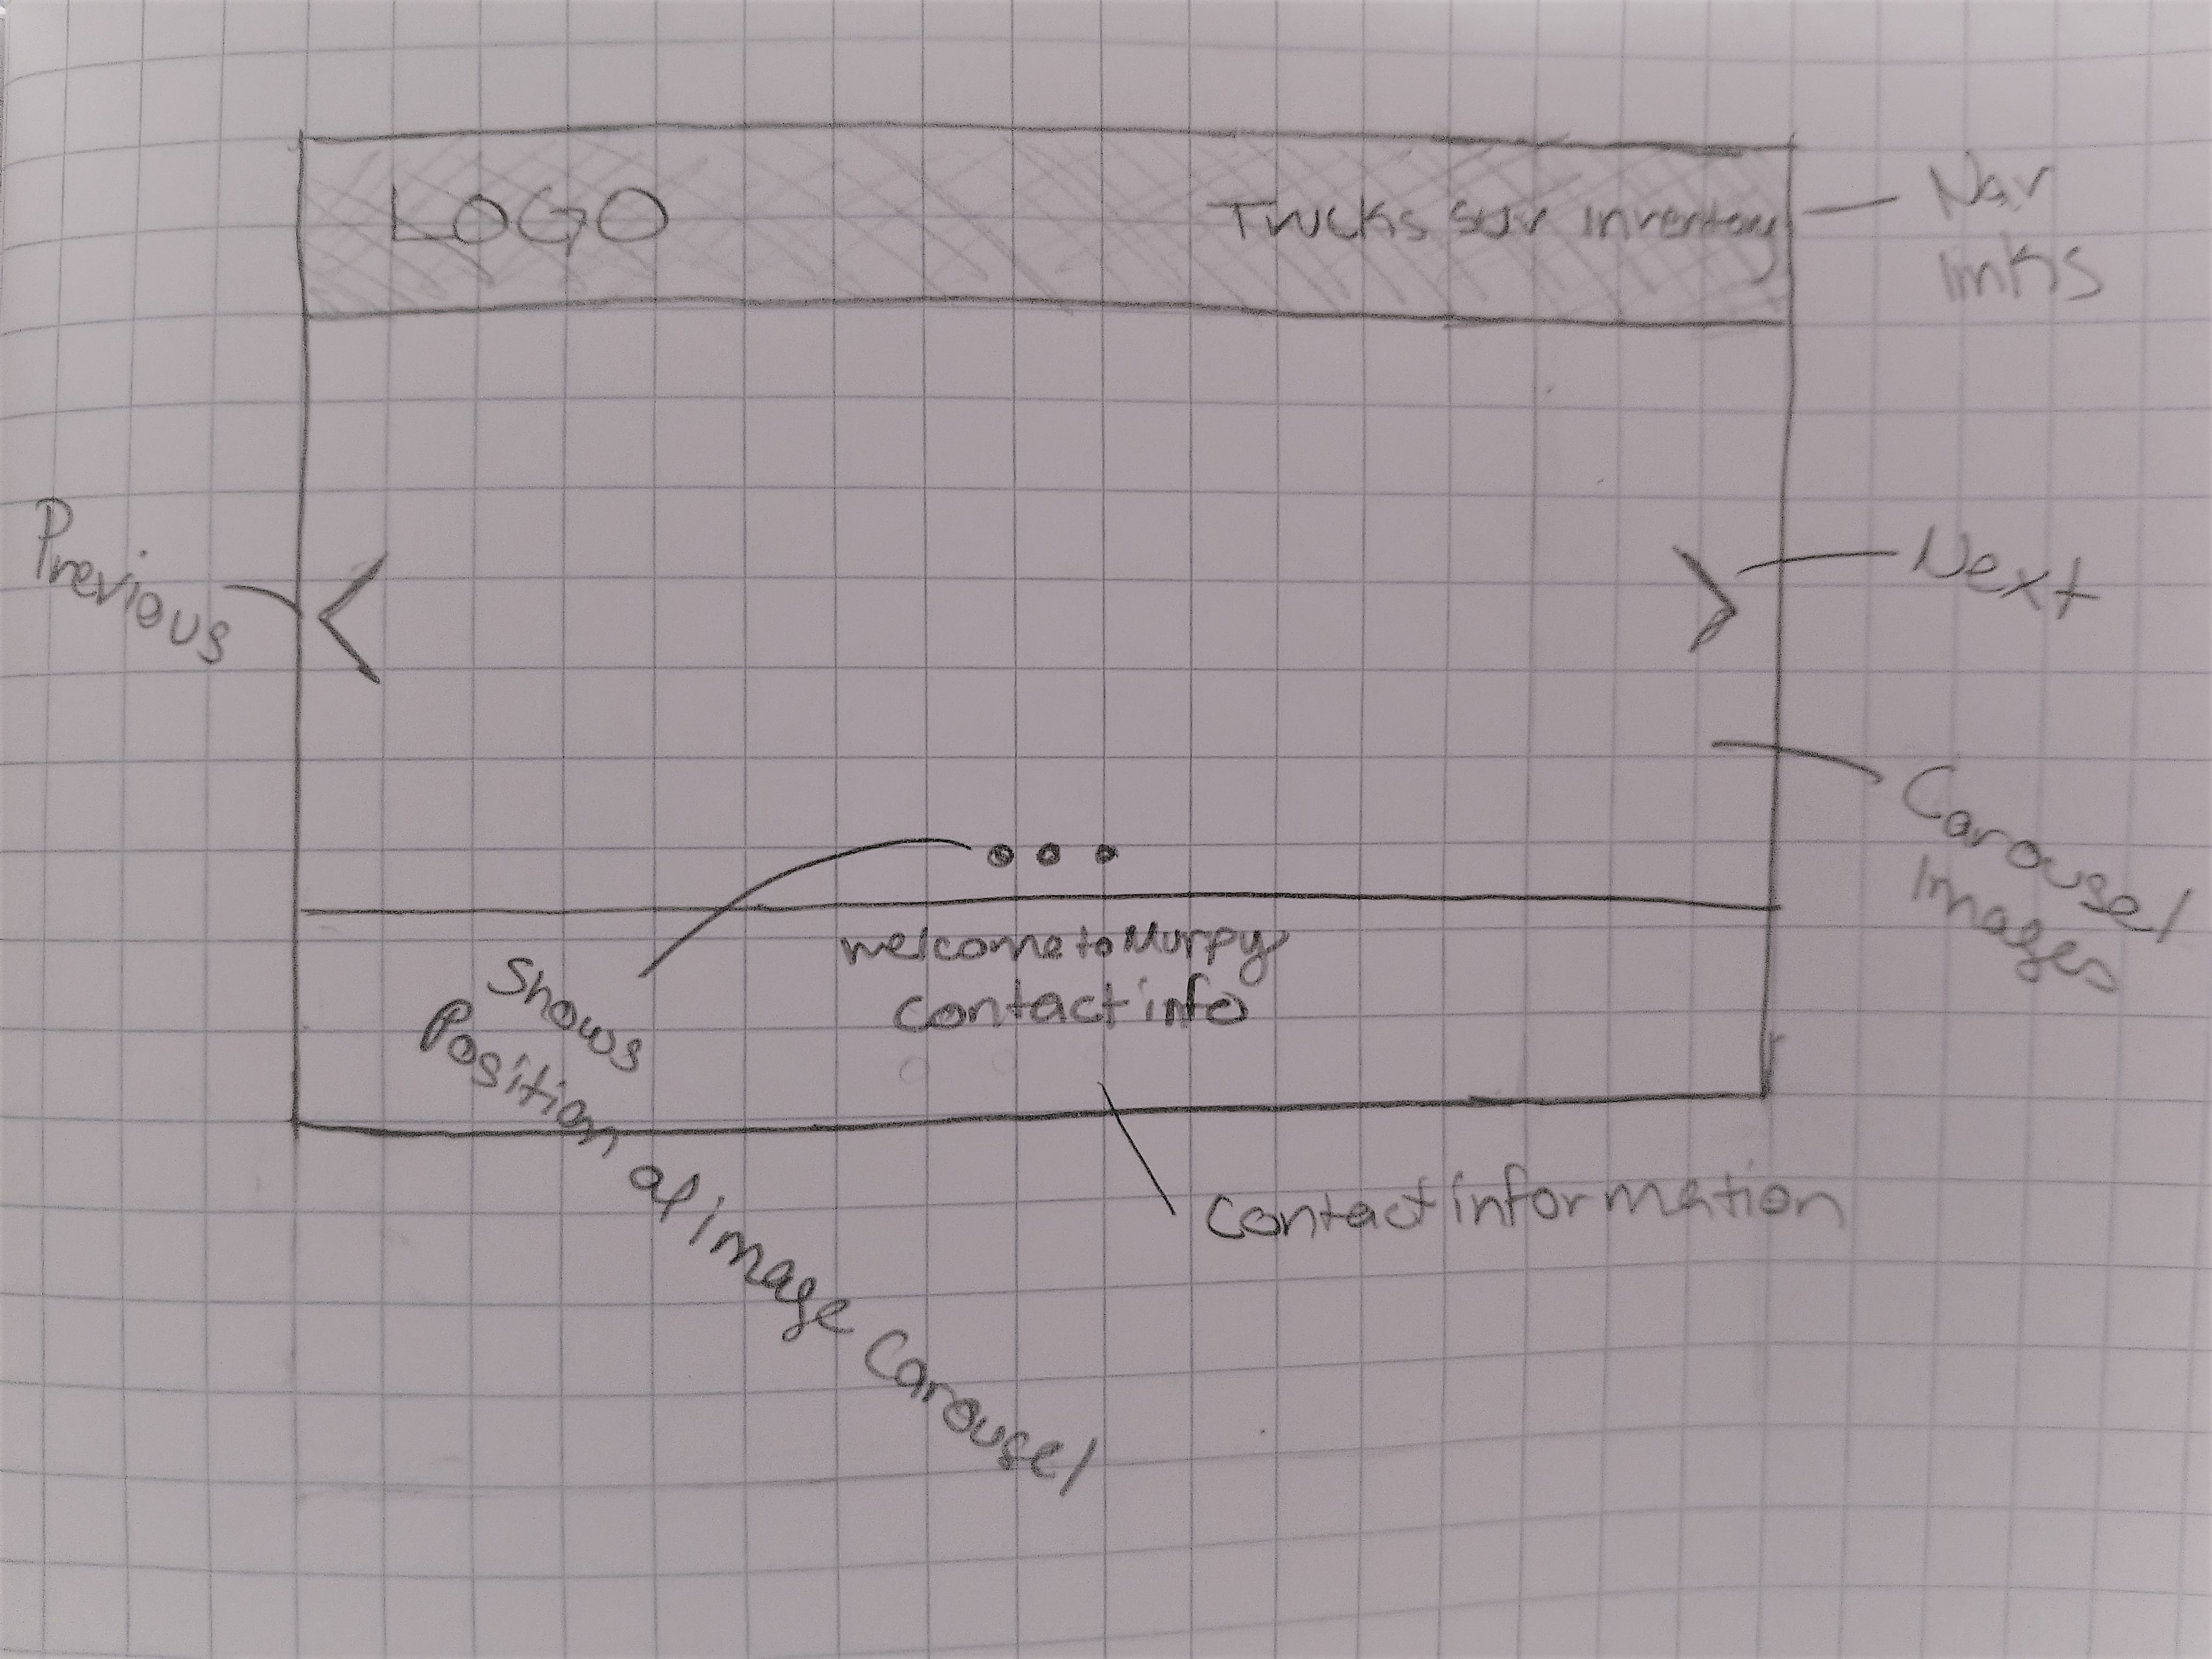 LOGO
Trucks suv inventory
Nav
links
Previous
Next
Carousel
Images
welcome to Murpy
contact info
Shows
Position of image Carousel
Contact information